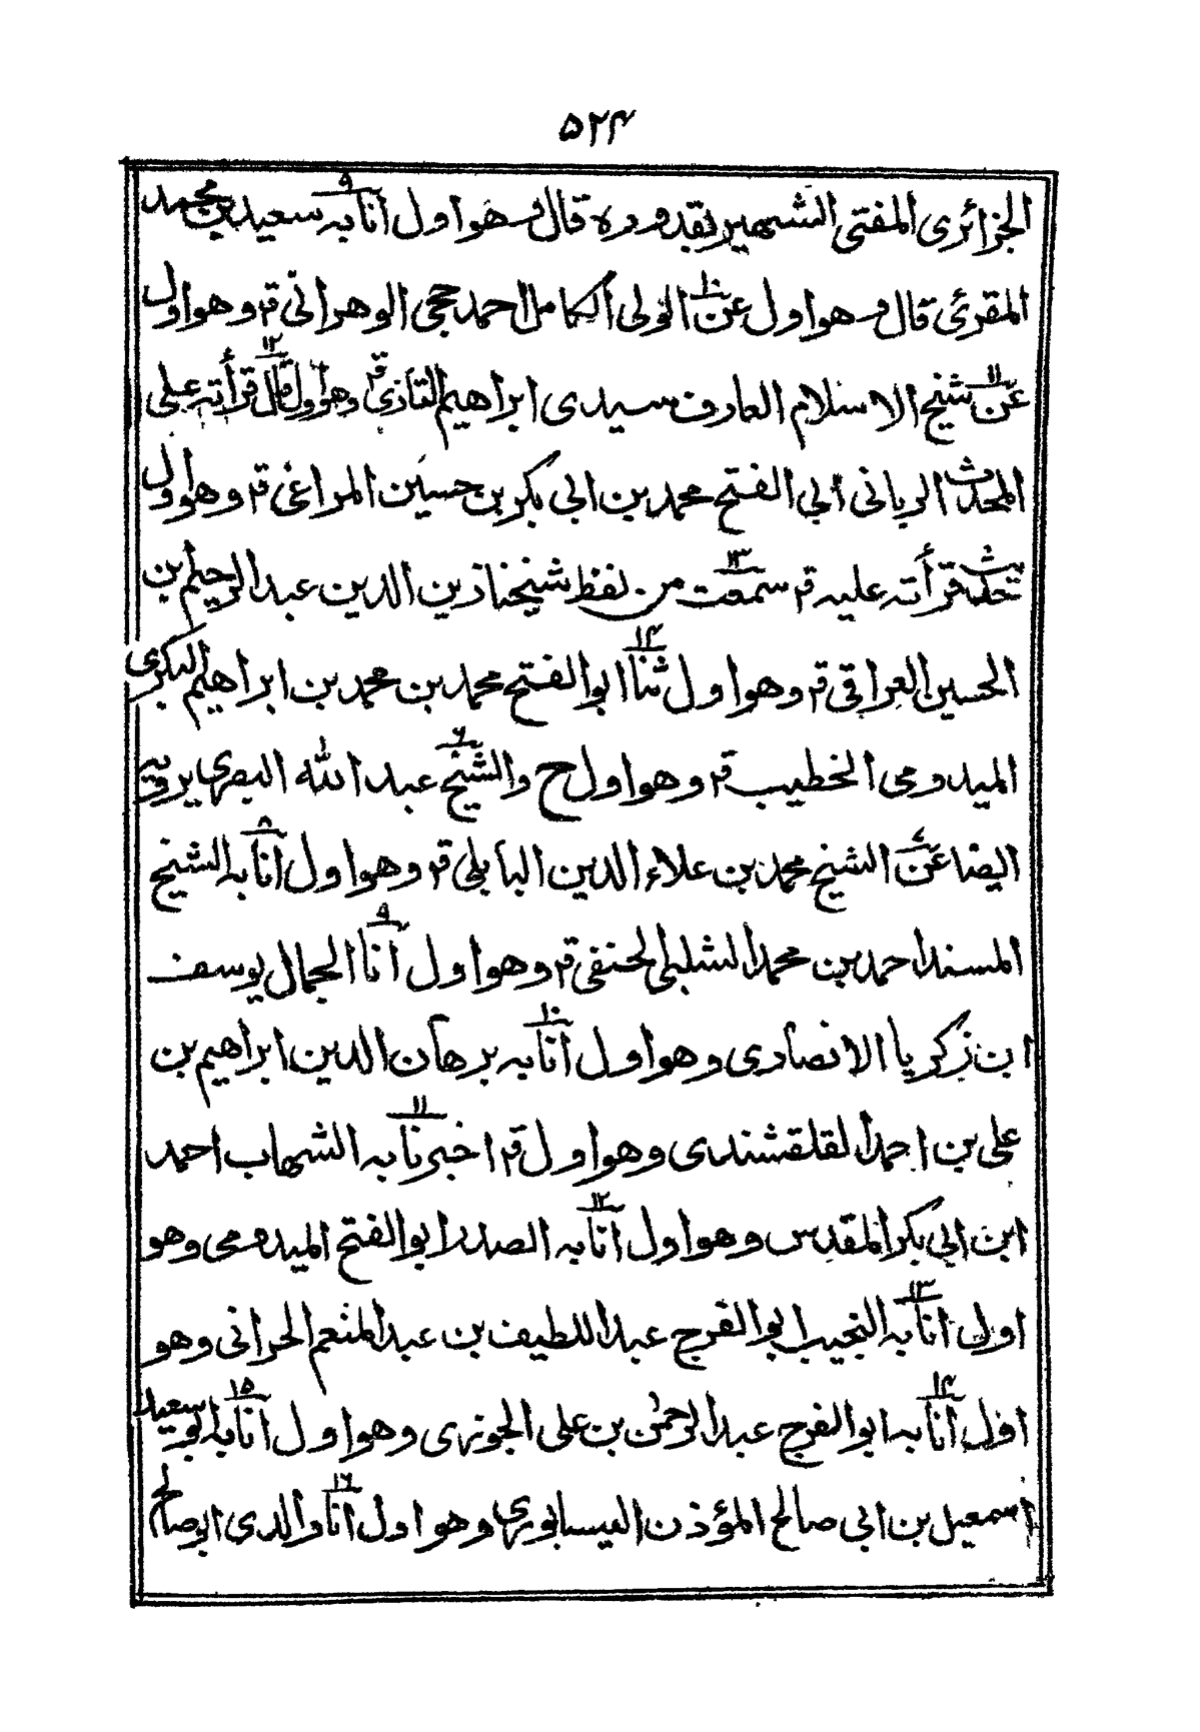 ۵۲۴
الجزائرى المفتى الشهير بقدوره قال وهو اول انا به سعيد بن محمد ۹
المقرئ قال وهو اول عن الولى الكامل احمد حجى الوهرانى قر وهو اول ۱۰
عن شيخ الاسلام العارف سيدى ابراهيم التازى قر وهو اول قال قرأته على ۱۱ ۱۲
المحدث الربانى ابى الفتح محمد بن ابى بكر بن حسين المراغى قر وهو اول
حديث قرأته عليه قر سمعت من لفظ شيخنا زين الدين عبد الرحيم بن ۱۳
الحسين العراقى قر وهو اول ثنا ابو الفتح محمد بن محمد بن ابراهيم البكرى ۱۴
الميدومى الخطيب قر وهو اول ح والشيخ عبد الله البصرى يرويه ۶
ايضا عن الشيخ محمد بن علاء الدين البابلى قر وهو اول انا به الشيخ ۷ ۸
المسند احمد بن محمد الشلبى الحنفى قر وهو اول انا الجمال يوسف ۹
ابن زكريا الانصارى وهو اول انا به برهان الدين ابراهيم بن ۱۰
على بن احمد القلقشندى وهو اول قر اخبرنا به الشهاب احمد ۱۱
ابن ابى بكر المقدس وهو اول انا به الصدر ابو الفتح الميدومى وهو ۱۲
اول انا به النجيب ابو الفرج عبد اللطيف بن عبد المنعم الحرانى وهو ۱۳
اول انا به ابو الفرج عبد الرحمن بن على الجوزى وهو اول انا به ابو سعيد ۱۴ ۱۵
اسمعيل بن ابى صالح المؤذن النيسابورى وهو اول انا والدى ابو صالح ۱۶